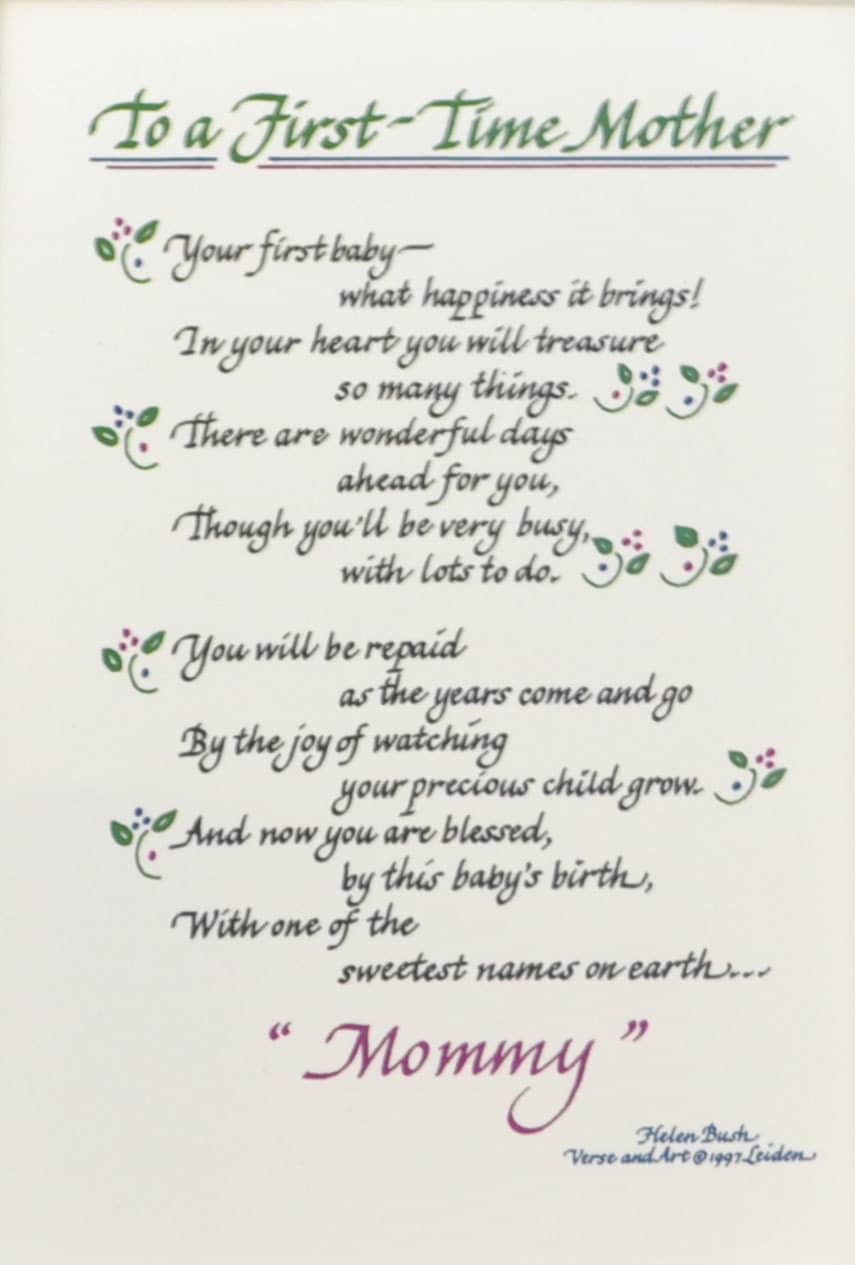 To a First-Time Mother
Your first baby—
what happiness it brings!
In your heart you will treasure
so many things.
There are wonderful days
ahead for you,
Though you'll be very busy,
with lots to do.
You will be repaid
as the years come and go
By the joy of watching
your precious child grow.
And now you are blessed,
by this baby's birth,
With one of the
sweetest names on earth...
“Mommy”
Helen Bush
Verse and Art © 1997 Leiden